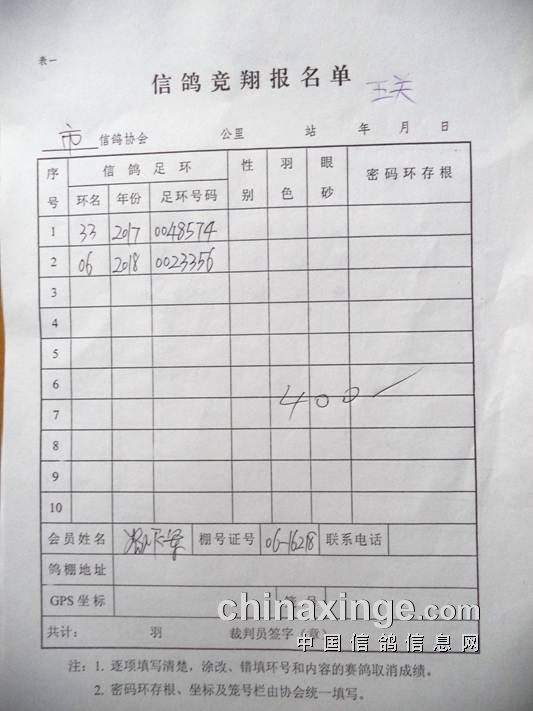 表一
信鸽竞翔报名单 王关
市 信鸽协会 公里 站 年 月 日
序号 信鸽足环 性别 羽色 眼砂 密码环存根
环名 年份 足环号码
1 33 2017 0048574
2 06 2018 0023356
3
4
5
6
400
7
8
9
10
会员姓名 棚号证号 06-16218 联系电话
鸽棚地址
GPS坐标
共计: 羽 裁判员签字(章)
chinaxinge.com
中国信鸽信息网
注:1. 逐项填写清楚,涂改、错填环号和内容的赛鸽取消成绩。
2. 密码环存根、坐标及笼号栏由协会统一填写。